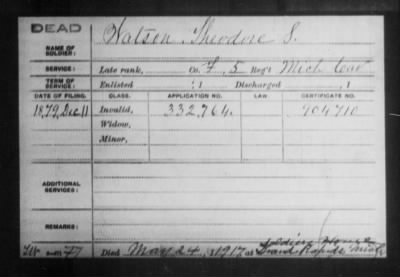 DEAD
Watson, Theodore S.
NAME OF
SOLDIER:
SERVICE: Late rank, Co. F, 5 Reg't Mich Cav
TERM OF
SERVICE: Enlisted , 1 Discharged , 1
DATE OF FILING. CLASS. APPLICATION NO. LAW. CERTIFICATE NO.
1879, Dec 11 Invalid, 332,764. 904710
Widow,
Minor,
ADDITIONAL
SERVICES:
REMARKS:
Died May 24, 1917 at Soldiers Home
Grand Rapids, Mich
77